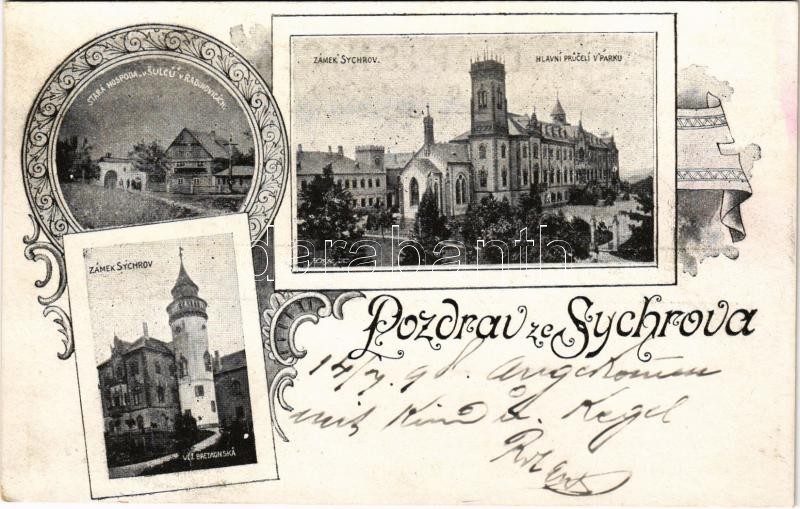 STARÁ HOSPODA „U ŠULCŮ“ V RADIMOVICÍCH.
ZÁMEK SYCHROV.
HLAVNÍ PRŮČELÍ V PARKU
ZÁMEK SYCHROV
VĚŽ BRETAGNSKÁ
darabanth
Pozdrav ze Sychrova
98. Angekommen
mit Kind u. Kegel